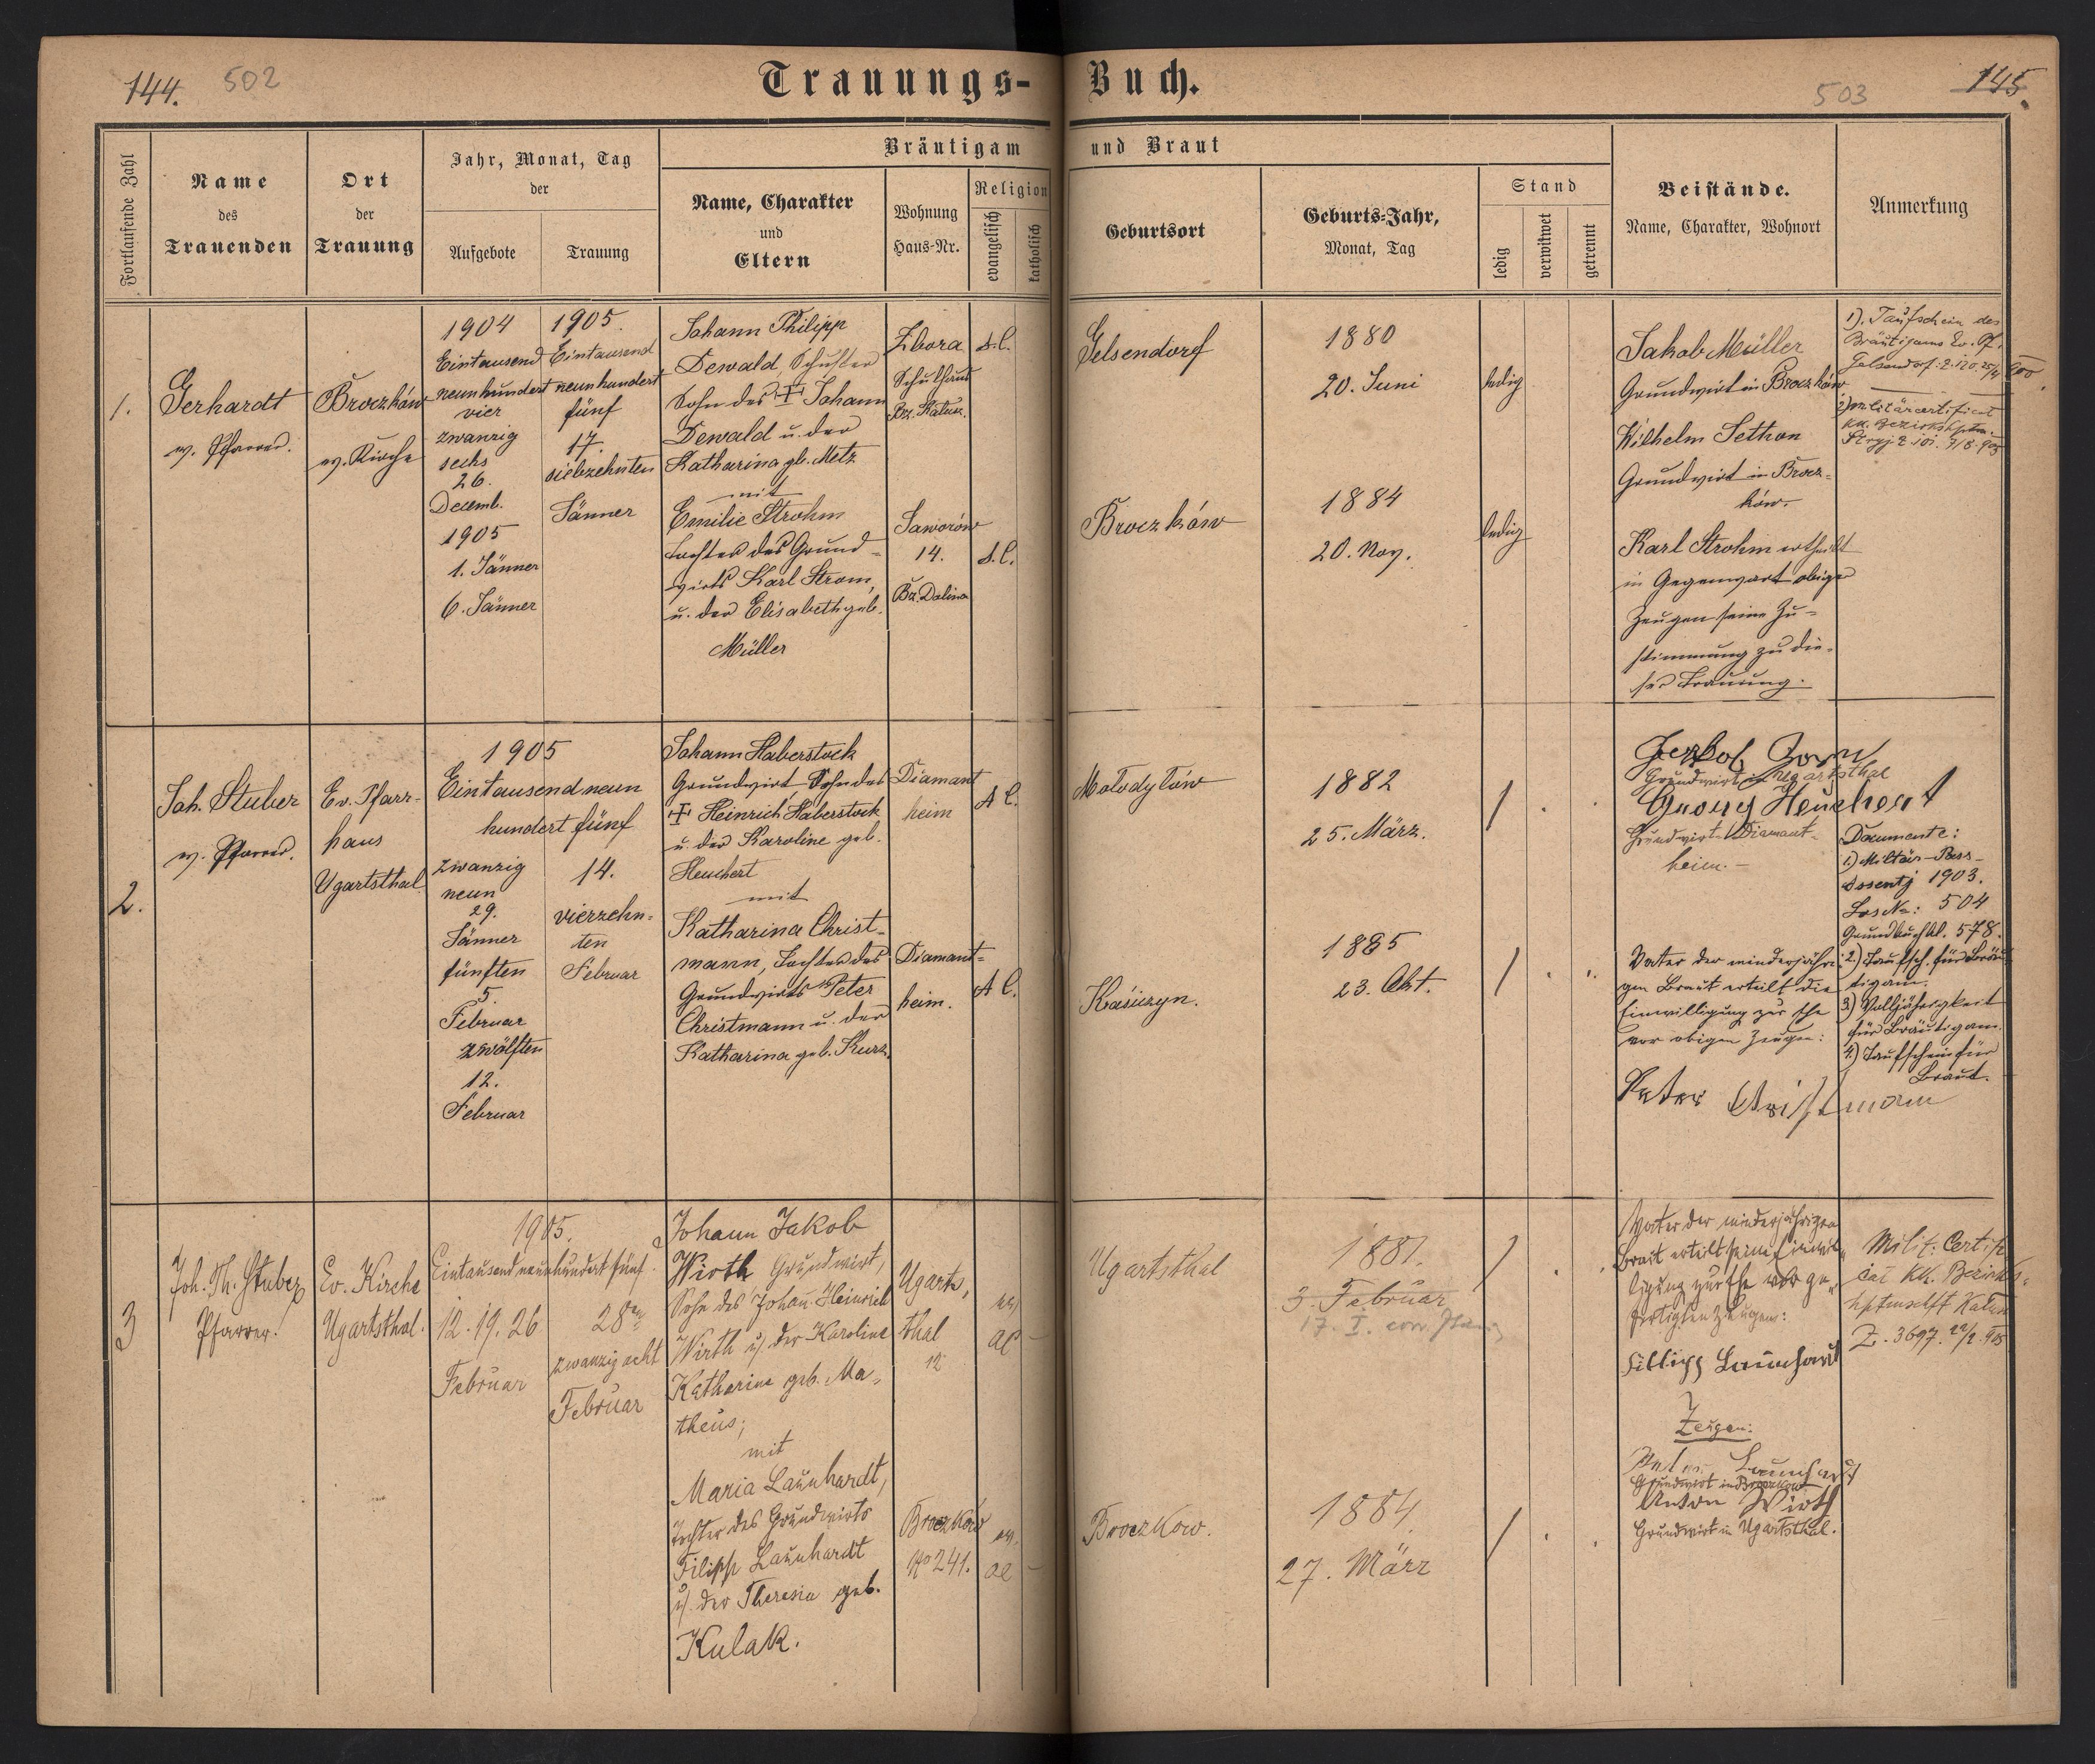 144. 502
Trauungs- Buch.
503 145.
Fortlaufende Zahl
Name
des
Trauenden
Ort
der
Trauung
Jahr, Monat, Tag
der
Aufgebote
Trauung
Bräutigam und Braut
Name, Charakter
und
Eltern
Wohnung
Haus-Nr.
Religion
evangelisch
katholisch
Geburtsort
Geburts-Jahr,
Monat, Tag
Stand
ledig
verwitwet
getrennt
Beistände.
Name, Charakter, Wohnort
Anmerkung
1.
Gerhardt
ev. Pfarrer.
Broczków
ev. Kirche
1904
Eintausend
neunhundert
vier
zwanzig
sechs
26.
Decemb.
1905
1. Jänner
6. Jänner
1905.
Eintausend
neunhundert
fünf
17.
siebzehnten
Jänner
Johann Philipp
Dewald, Schuster
Sohn des ✝ Johann
Dewald u. der
Katharina gb. Metz
mit
Emilie Strohm
Tochter des Grund-
wirts Karl Strom,
u. der Elisabeth geb.
Müller
Zbora
Schulhaus
Bz. Kalusz.
Jaworów
14.
Bz. Dolina
A.C.
A.C.
Gelsendorf
Broczków
1880
20. Juni
1884
20. Nov.
ledig
ledig
Jakob Müller
Grundwirt in Broczków
Wilhelm Jethon
Grundwirt in Brocz-
ków.
Karl Strohm ertheilt
in Gegenwart obiger
Zeugen seine Zu-
stimmung zu die-
ser Trauung.
1). Taufschein des
Bräutigams Ev. Pf.
Gelsendorf. Z. 120. 25/4 900.
2) Militärcertificat
kk. Bezirkshptm.
Stryj Z. 101. 9/8. 905
2.
Joh. Stuber
ev. Pfarrer.
Ev. Pfarr-
haus
Ugartsthal.
1905
Eintausend neun
hundert fünf
zwanzig
neun
29.
Jänner
fünften
5.
Februar
zwölften
12.
Februar
14.
vierzehn-
ten
Februar
Johann Haberstock
Grundwirt Sohn des
✝ Heinrich Haberstock
u. der Karoline geb.
Heuchert
mit
Katharina Christ-
mann, Tochter des
Grundwirts Peter
Christmann u. der
Katharina geb. Kurz.
Diamant
heim
Diamant-
heim.
A C.
A C.
Mołodyłów
Krasiczyn.
1882
25. März.
1885
23. Okt.
Jakob Zorn
Grundwirt in Ugartsthal
Georg Heuchert
Grundwirt Diamant-
heim.-
Vater der minderjähri-
gen Braut erteilt die
Einwilligung zur Ehe
vor obigen Zeugen:
Peter Christmann
Documente:
1) Militär-Pass-
Assentj 1903.
Los No: 504
Grundbuchbl. 578.
2.) Taufsch. für Bräu-
tigam.
3) Volljährigkeit
für Bräutigam.
4.) Taufschein für
Braut.
3
Joh. Th. Stuber
Pfarrer.
Ev. Kirche
Ugartsthal.
1905.
Eintausend neunhundert fünf
12. 19. 26
Februar
28ten
zwanzig acht
Februar
Johann Jakob
Wirth Grundwirt,
Sohn des Johan. Heinrich
Wirth u/ der Karoline
Katharine geb. Ma-
theus;
mit
Maria Launhardt,
Tochter des Grundwirts
Filipp Launhardt
u/ der Theresia geb.
Kulak.
Ugarts,
thal
12
Broczkow
No 241.
ev.
AC -
ev.
AC -
Ugartsthal
Broczkow.
1881.
3. Februar
17. I.
1884
27. März
Vater der minderjährigen
Braut erteilt seine Einwil-
ligung zur Ehe vor ge-
fertigten Zeugen:
Filipp Launhardt
Zeugen:
Peter Launhardt
Grundwirt in Broczkow
Anton Wirth
Grundwirt in Ugartsthal.
Milit. Certifi-
cat kk. Bezirks-
hptmschft Kałusz
Z. 3697. 22/2. 905